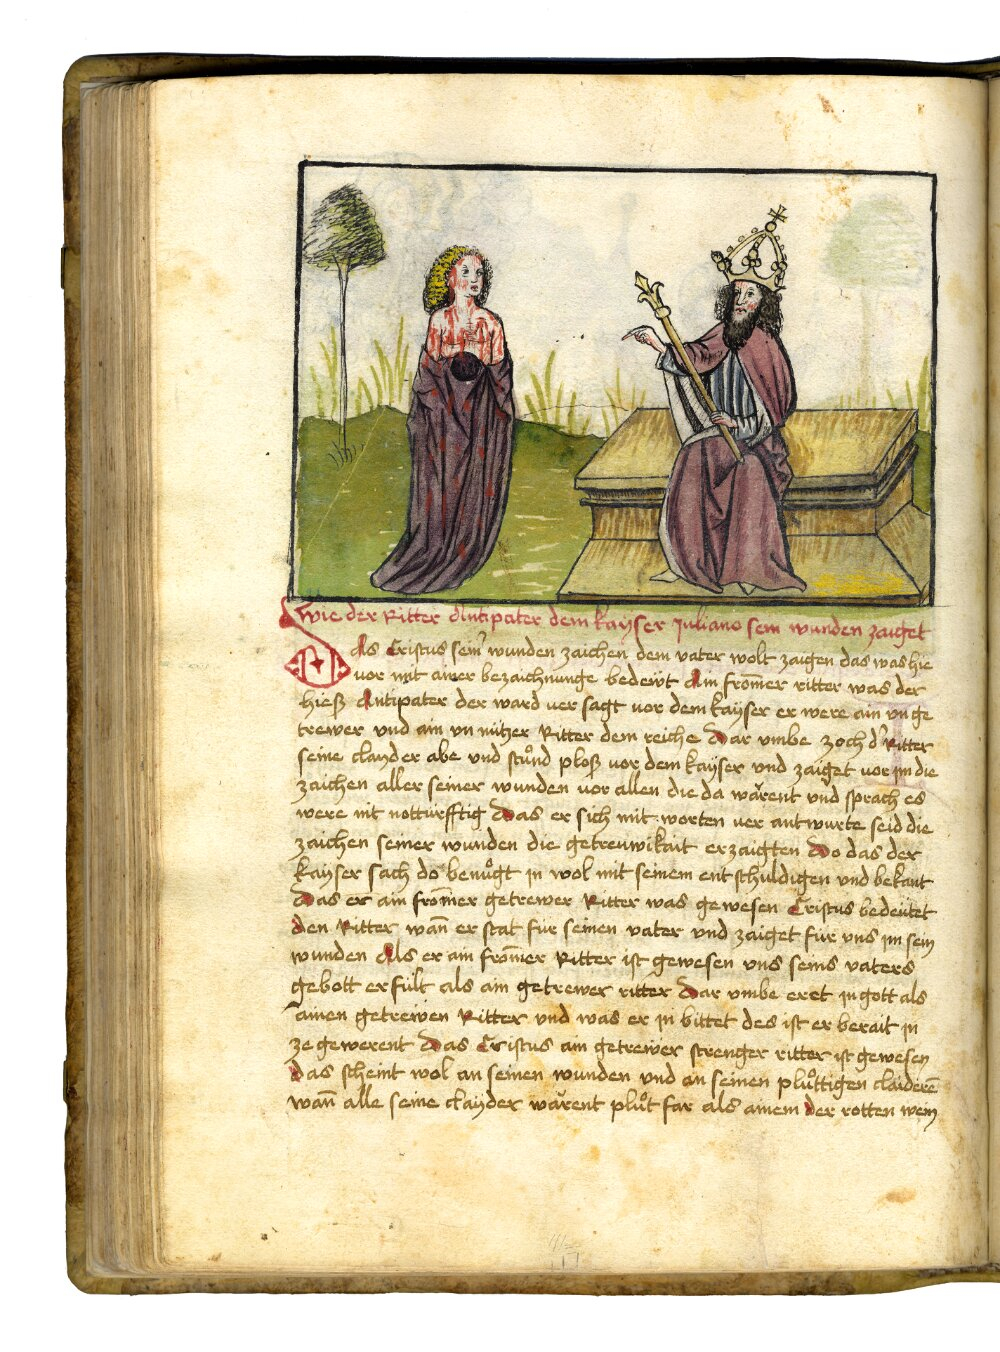 Wie der Ritter Antipater dem kayser Juliano sein wunden zaiget
Das Cristus sein' wunden zaichen dem vater wolt zaigen das was hie
vor mit ainer bezaichnunge bedewt Ain from̄er ritter was der
hieß Antipater der ward ver sagt vor dem kayser er were ain vn ge
trewer vnd ain vn nützer Ritter dem reiche Dar vmbe zoch d' Ritter
seine clayder abe vnd stůnd ploß vor dem kayser vnd zaiget vor jm die
zaichen aller seiner wunden vor allen die da wärent vnd sprach es
were nit notturfftig Das er sich mit worten ver antwurte seid die
zaichen seiner wunden die getreuwikait erzaigten Do das der
kayser sach do benůgt jn wol mit seinem entschuldigen vnd bekant
Das er ain from̄er getrewer Ritter was gewesen Cristus bedeütet
den Ritter wan̄ er stat für seinen vater vnd zaiget für vns jm sein
wunden Als er ain from̄er Ritter ist gewesen vns seins vaters
gebott erfült als ain getrewer ritter Dar vmbe eret jn gott als
ainen getrewen Ritter vnd was er jn bittet des ist er berait jn
ze gewerent Das Cristus ain getrewer strenger ritter ist gewesen
Das scheint wol an seinen wunden vnd an seinen plůttigen claidere̅
wan̄ alle seine clayder wärent plůt far als ainem der rotten wein